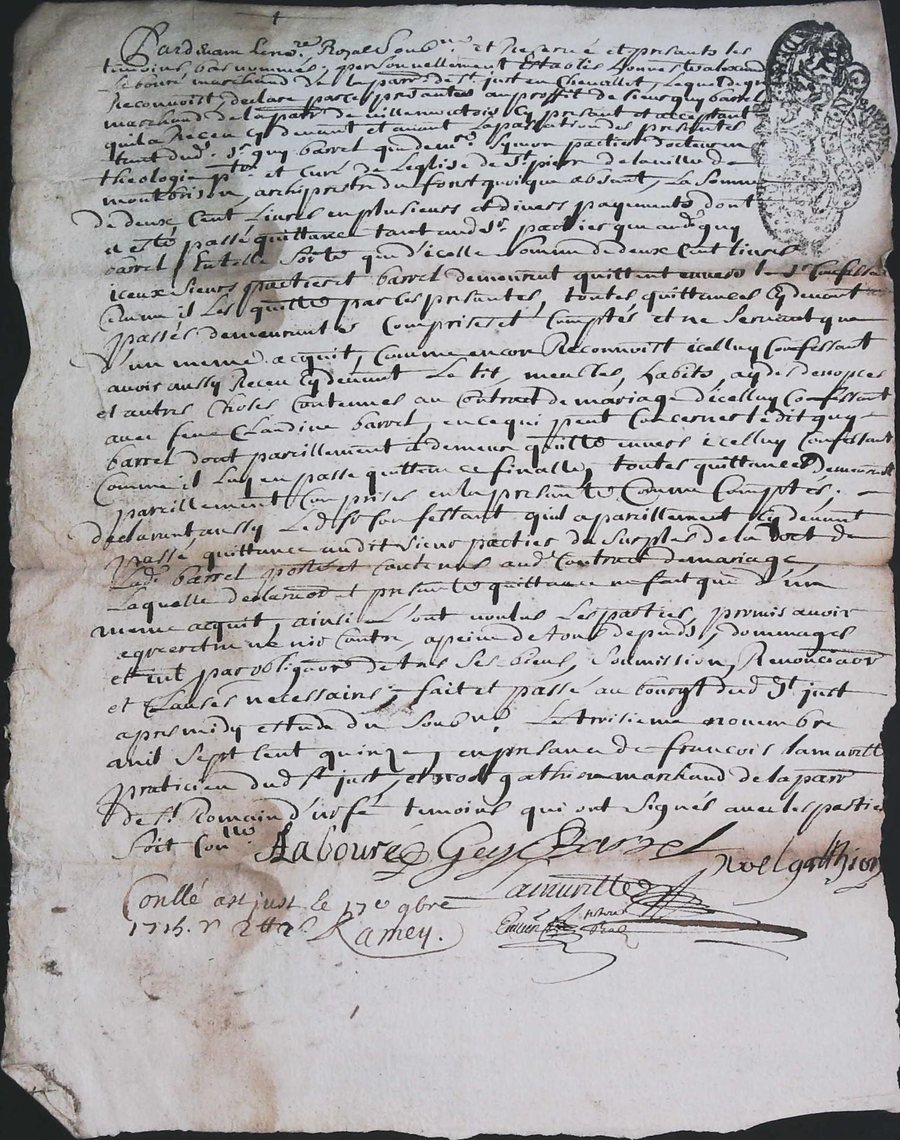 Pardevant le no.re Royal Soub.né et reservé et presants les
temoins bas nommés, personnellement Establis honneste
Labouré marchand de la parr.e de St just en Chevallet, Lequel de gré
Reconnoist, declare par ces presantes au proffit de sieur guy barrel
marchand de la parr.e de cy present et acceptant
qu'il a Receu cy devant et avant la passation des presantes
tant dud.t Sr guy barrel que de m.re partier docteur en
theologie p.tre et Curé de L'eglise de St pierre de la ville de
montbrison, archiprestre du quoique absent, La Somme
de deux Cent Livres en plusieurs et divers payements dont
a esté passé quittance tant aud. Sr. parties que aud. guy
barrel, En telle Sorte que d'icelle Somme de deux Cent livres
iceux Sieurs partier et barrel demeurent quittent envers le d. Confessant
Comme il Les quitte par ces presantes, toutes quittances Cy devant
passés demeurantes Comprises et Comptés et ne Servant que
d'un meme acquit, Comme encor Reconnoist icelluy Confessant
avoir aussy Receu Cy devant Le lit, meubles, habits, aydes de nopces
et autres Choses Contenues au Contract de mariage d'icelluy Confessant
avec feue Claudine barrel, en ce qui peut Concerner ledit guy
barrel dont pareillement il demeure quitte envers icelluy Confessant
Comme il luy en passe quittance finalle, toutes quittances demeurant
pareillement Comprises en la presante Comme Comptés.
declarant aussy Le d. Sr Confessant qu'il a pareillement Cy devant
passé quittance audit Sieur parties du Surplus de la doct de
lad. barrel porté et Contenus aud. Contract de mariage
Laquelle declaration et presante quittance ne fait que d'un
meme acquit, ainsi L'ont voulus Les parties, promis avoir
agreer et ne venir Contre, a peine de tous depends, dommages
et int. par obligaon de tous Ses biens, Soumission, Renonciaon
et Clauses necessaires, fait et passé au bourgt dud St just
apres midy estude du Soub.né Le troisieme novembre
mil Sept Cent quinze, en presance de françois Lamurette
praticien dud St just, et noel gathion marchand de la parr
de St Romain d'urfé temoins qui ont Signés avec les parties
Soit Con.llé
Labouré Guy Barrel
Noel gathion
Conllé a St just le 17e 9bre
1715. Ramey.